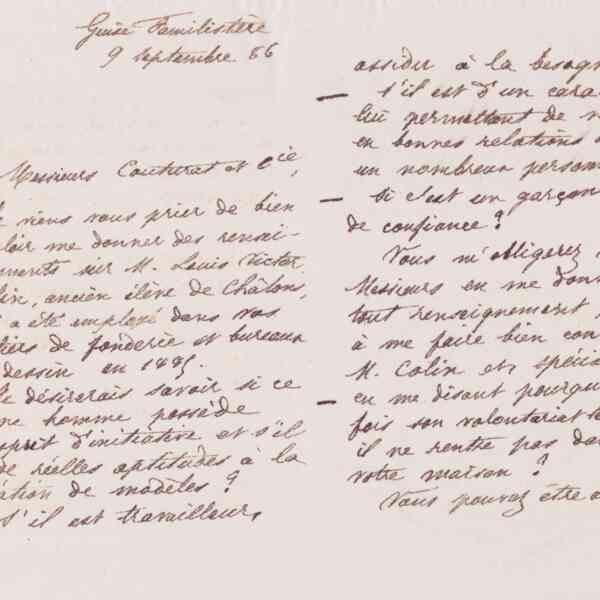 Guise Familistère
9 septembre 86
Messieurs Couturat et Cie,
e viens vous prier de bien
loir me donner des rensei-
ements sur M. Louis Victor
lin, ancien élève de Châlons,
i a été employé dans vos
liers de fonderie et bureaux
dessin en 1885.
Je désirerais savoir si ce
ne homme possède
sprit d'initiative et s'il
de réelles aptitudes à la
ation de modèles ?
S'il est travailleur,
assidu à la besogn
— S'il est d'un cara
lui permettant de
en bonnes relations
un nombreux person
— Si c'est un garçon
de confiance ?
Vous m'obligerez
Messieurs en me donn
tout renseignement
à me faire bien con
M. Colin et, spécia
— en me disant pourqu
fois son volontariat te
il ne rentre pas da
votre maison ?
Vous pouvez être a